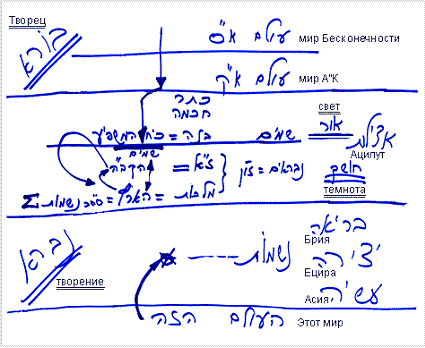 Творец
בורא
עולם א"ס мир Бесконечности
עולם א"ק мир А"К
כתר
חכמה
свет
אור
אצילות
Ацилут
שמים
בינה = כח המשפיע
שמים
הקב"ה = ז"א
נבראים = זו"ן
חושך
темнота
Σ נשמות = ספר = הארץ = מלכות
בריאה
Брия
נברא
творение
נשמות
יצירה
Ецира
עשיה
Асия
העולם הזה Этот мир